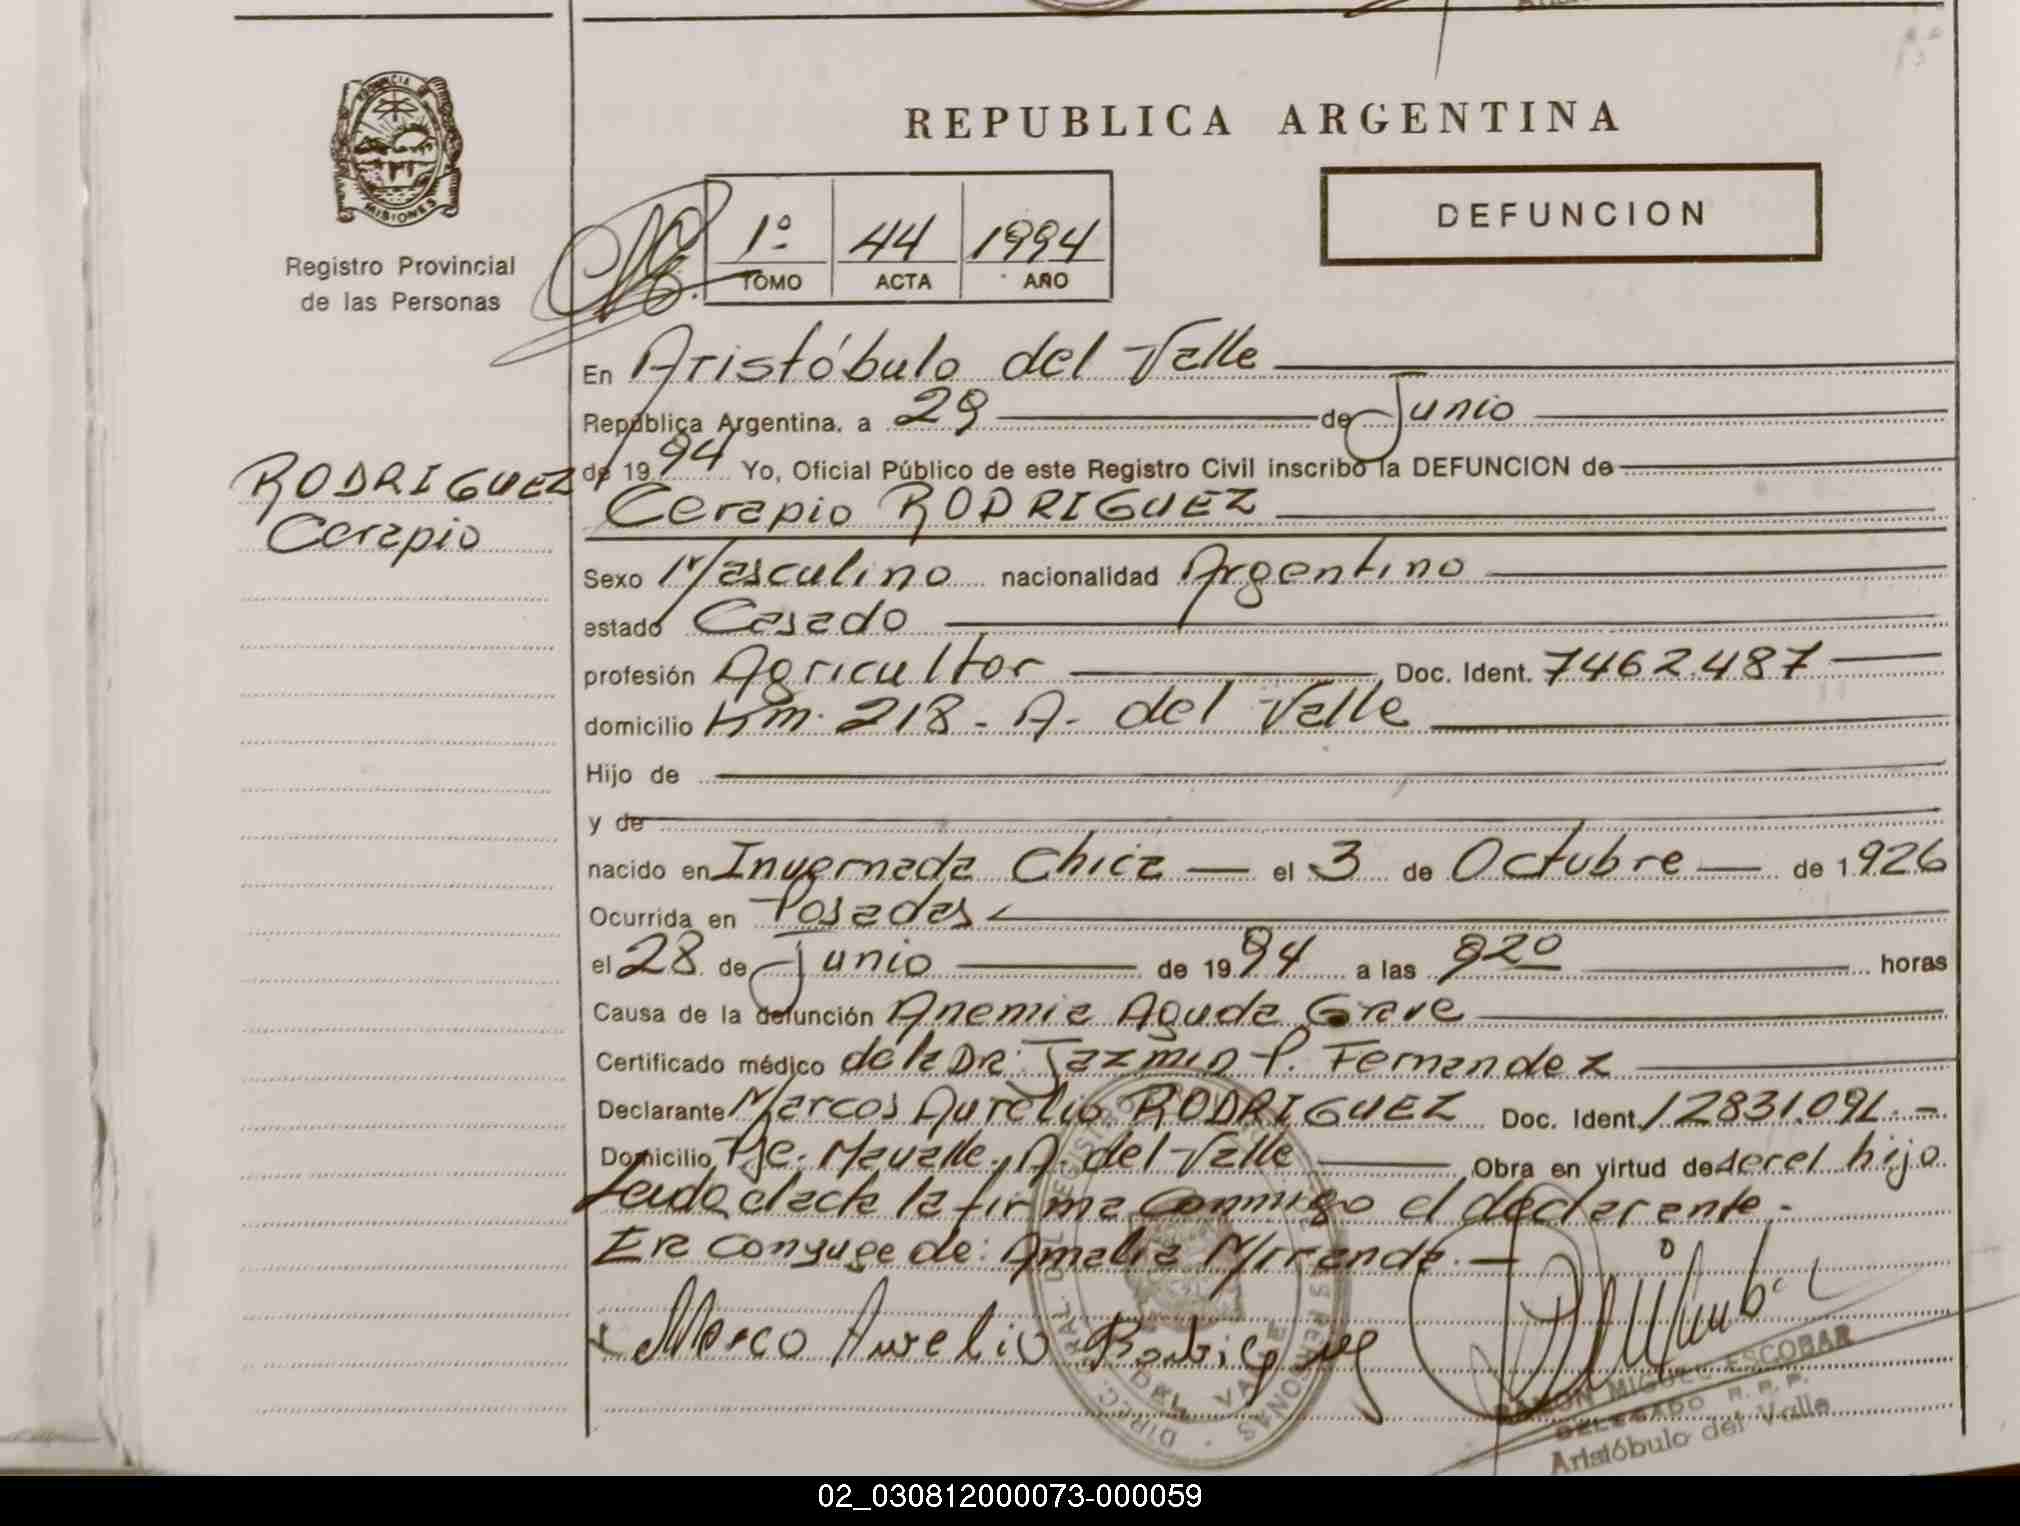 REPUBLICA ARGENTINA
PROVINCIA
MISIONES
Registro Provincial
de las Personas
1º 44 1994
TOMO ACTA AÑO
DEFUNCION
RODRIGUEZ
Cerapio
En Aristóbulo del Valle
República Argentina, a 29 de Junio
de 1994 Yo, Oficial Público de este Registro Civil inscribo la DEFUNCION de
Cerapio RODRIGUEZ
Sexo Masculino nacionalidad Argentino
estado Casado
profesión Agricultor Doc. Ident. 7462.487
domicilio Km. 218 - A. del Valle
Hijo de
y de
nacido en Invernada Chica el 3 de Octubre de 1926
Ocurrida en Posadas
el 28 de Junio de 1994 a las 920 horas
Causa de la defunción Anemia Aguda Grave
Certificado médico de la DRA: Jazmin P. Fernandez
Declarante Marcos Aurelio RODRIGUEZ Doc. Ident. 12831.091.-
Domicilio Pje. Mavalle. A. del Valle Obra en virtud de ser el hijo
Leida el acta la firma conmigo el declarante.-
Era conyuge de: Amalia Miranda.-
x Marco Aurelio Rodriguez
RAMON MIGUEL ESCOBAR
DELEGADO R. P. P.
Aristóbulo del Valle
02_030812000073-000059